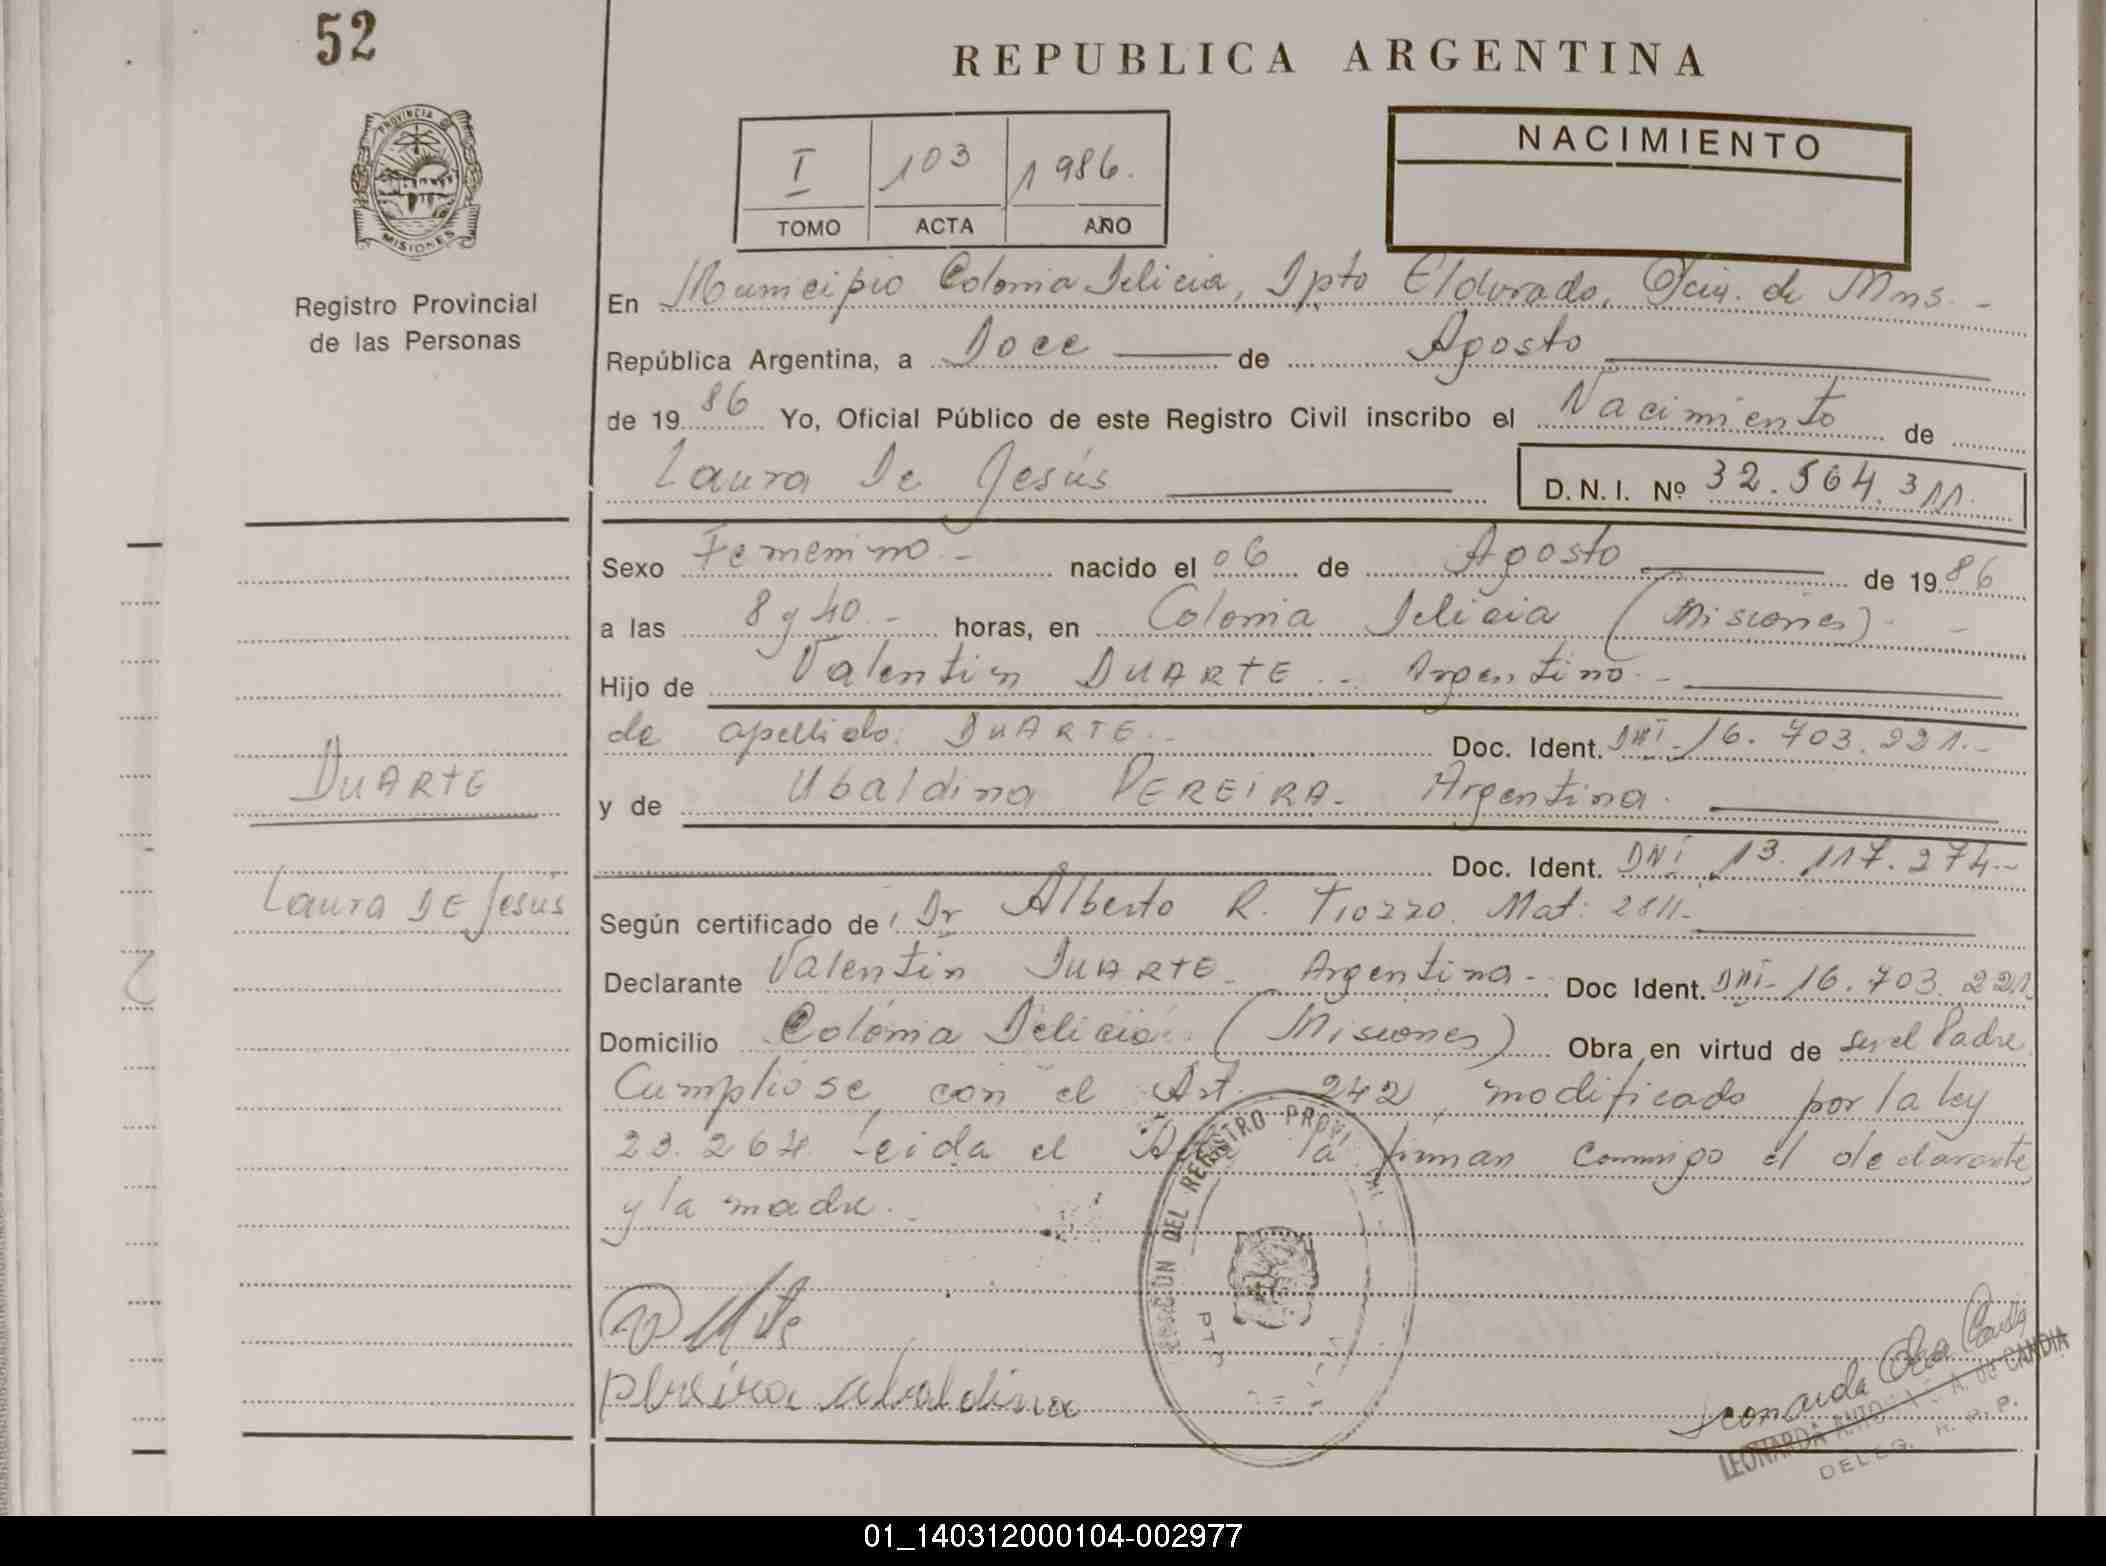 52
REPUBLICA ARGENTINA
PROVINCIA D
MISIONES
Registro Provincial
de las Personas
I 103 1986.
TOMO ACTA AÑO
NACIMIENTO
En Municipio Colonia Delicia, Dpto Eldorado, Pcia. de Mns. -
República Argentina, a Doce de Agosto
de 1986 Yo, Oficial Público de este Registro Civil inscribo el Nacimiento de
Laura De Jesús D.N.I. Nº 32.564.311.
Sexo Femenino.- nacido el 06 de Agosto de 1986
a las 8 y 40.- horas, en Colonia Delicia (Misiones)- -
Hijo de Valentin DUARTE.- Argentino.-
de apellido: DUARTE.- Doc. Ident. DNI-16.703.221.-
y de Ubaldina PEREIRA- Argentina.
Doc. Ident. DNI 13.117.274-
Según certificado de Dr Alberto R. Tiozzo. Mat: 2811-
Declarante Valentín DUARTE- Argentina- Doc Ident. DNI-16.703.221
Domicilio Colonia Delicia. (Misiones) Obra en virtud de ser el Padre
Cumplióse, con el Art. 242, modificado por la ley
23.264. Leida el Acta la firman conmigo el declarante
y la madre.-
DUARTE
Laura DE Jesús
pereira ubaldina
DEL REGISTRO PROVI
LEONARDA ANTO A. DE CANDIA
DELEG. R. P. P.
01_140312000104-002977